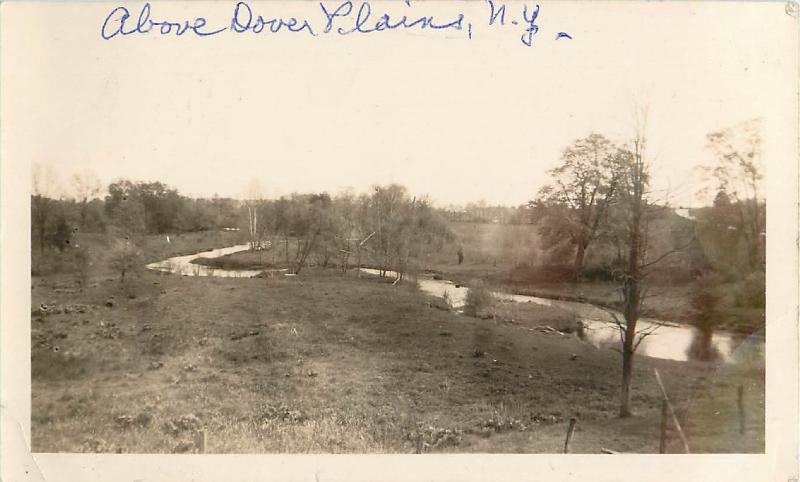 Above Dover Plains, N.Y.